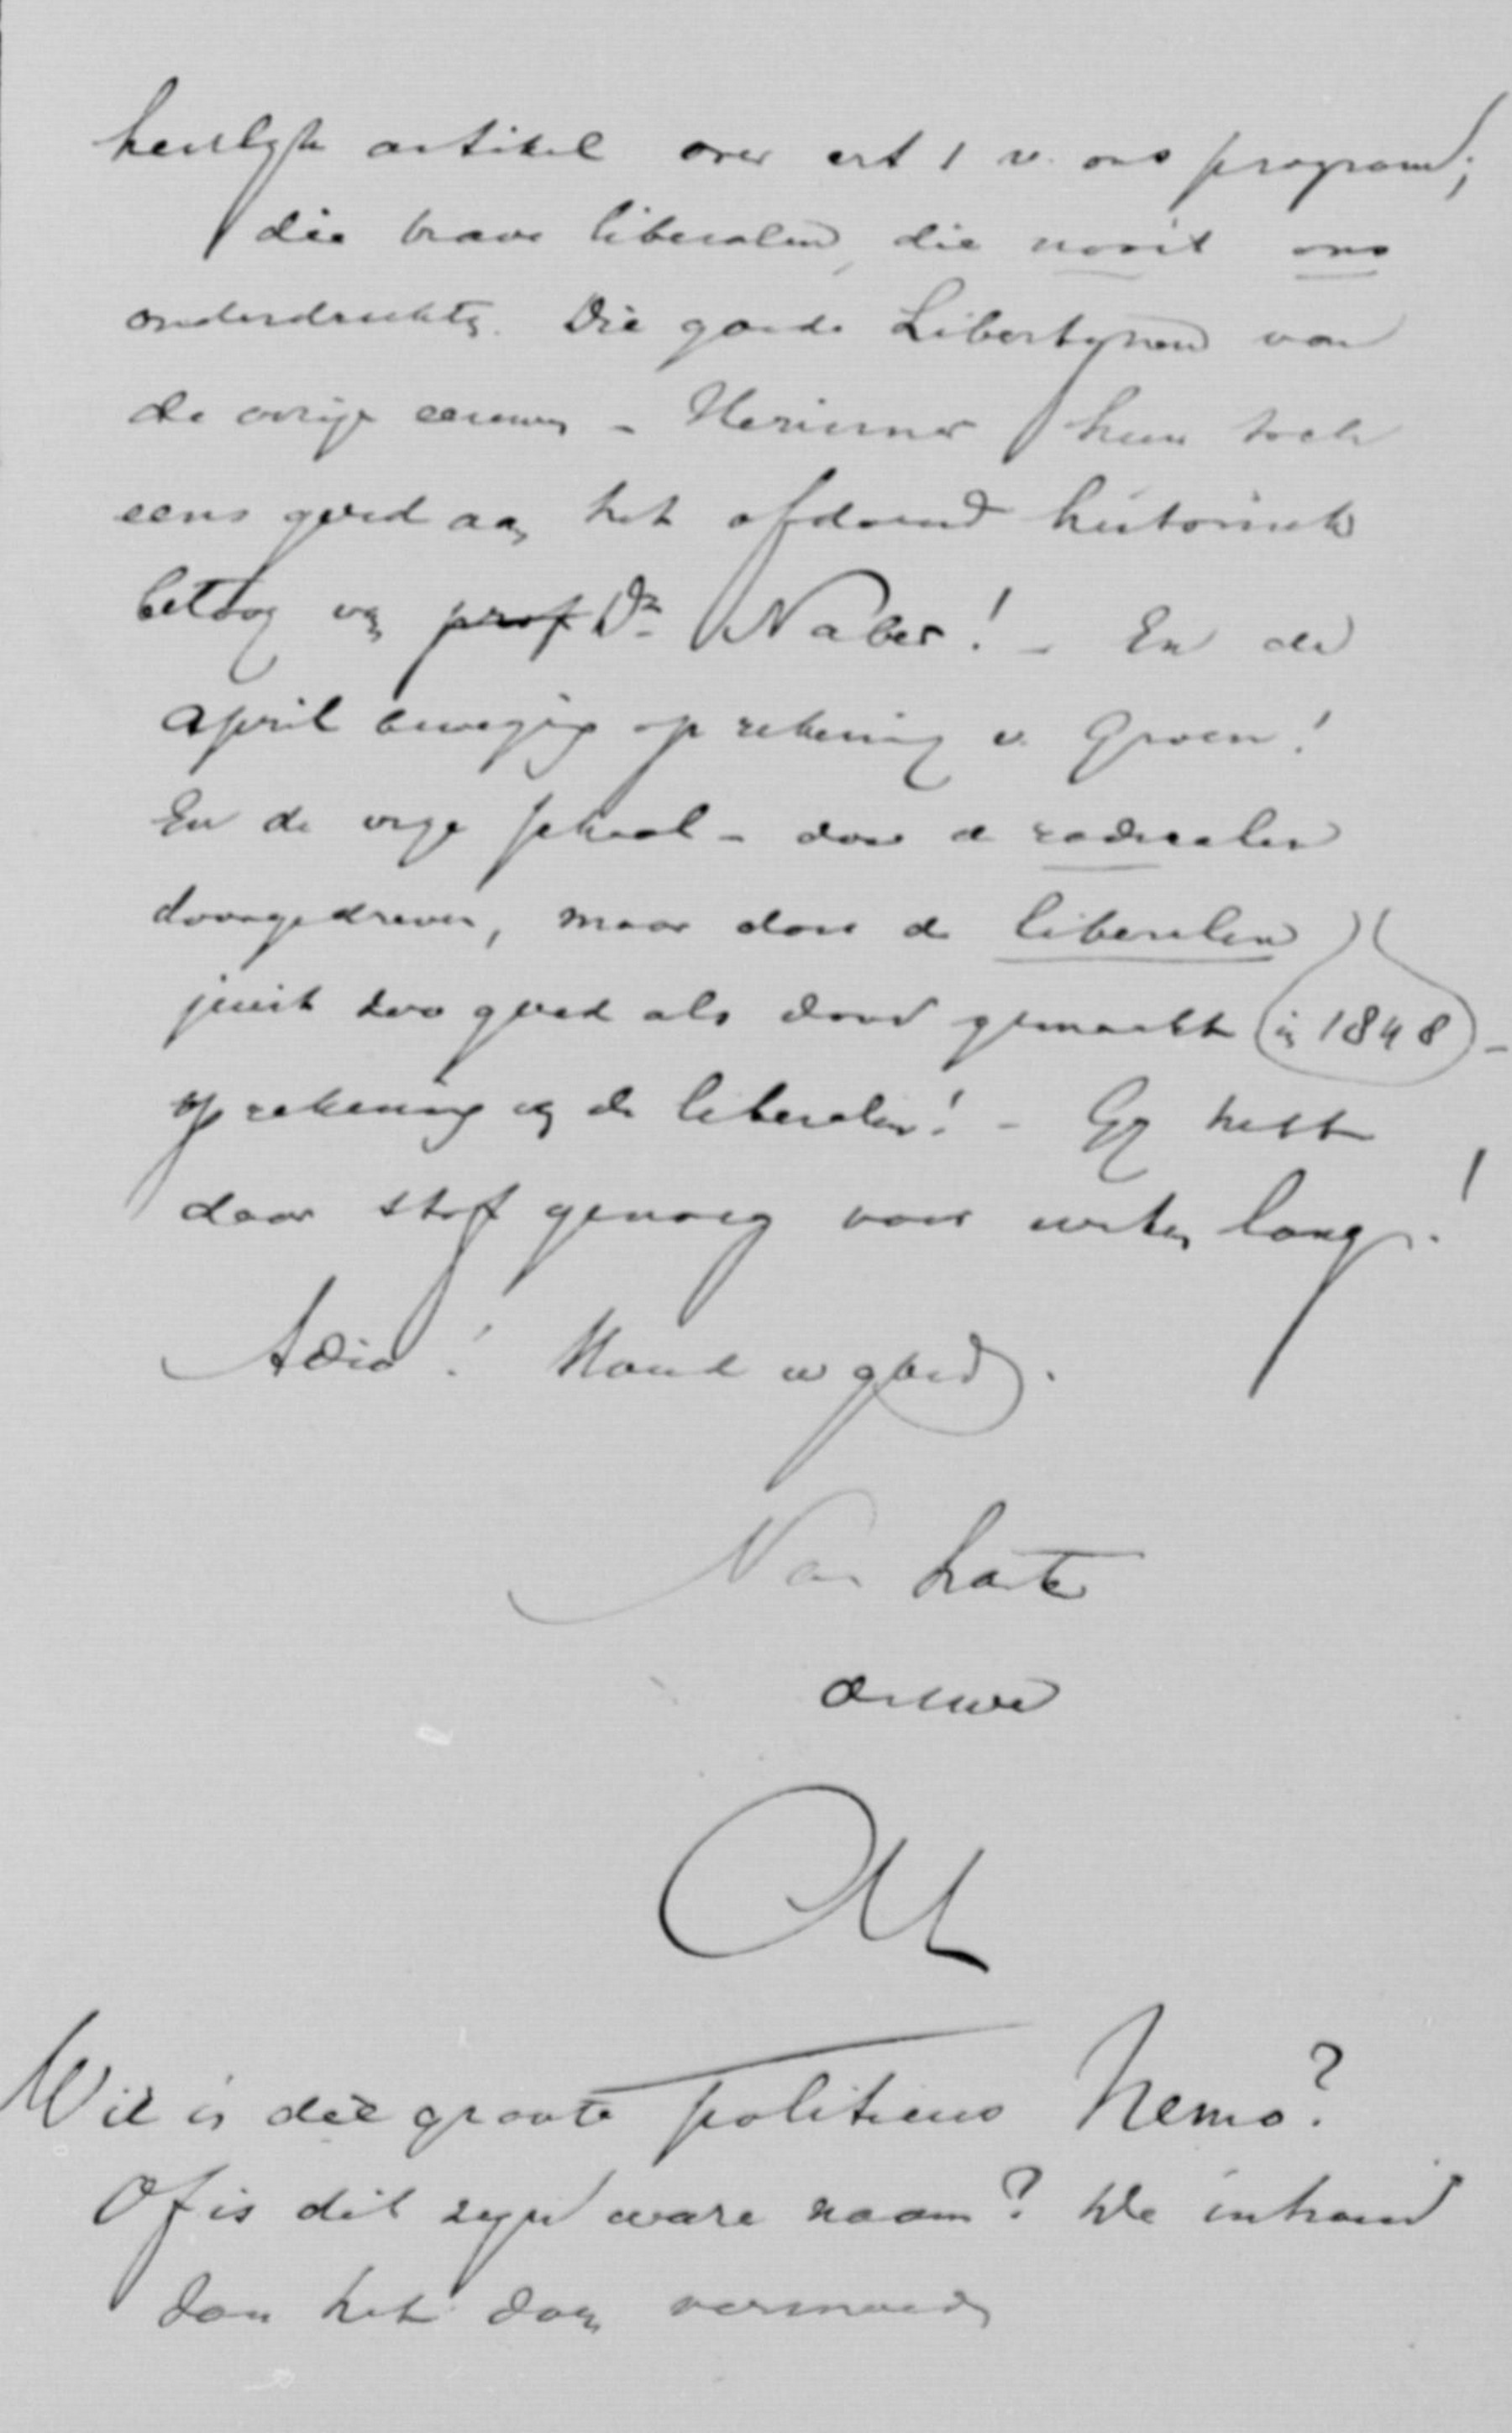 heerlyk artikel over art 1 v. ons program;
die brave liberalen, die nooit ons
onderdrukten. Die goede Libertynen van
de vorige eeuwen – Herinner hun toch
eens goed aan het afdoend historisch
betoog van prof Dr Naber! – En de
April beweging op rekening v. Groen!
En de vrye school – door de radicalen
doorgedreven, maar door de liberalen
juist zoo goed als dood gemaakt in 1848 –
op rekening van de liberalen! – Gy hebt
daar stof genoeg voor weken lang!
Adio! Houd u goed.
Van harte
de uwe
Wie is die groote politicus Nemo?
Of is dit zyn ware naam? De inhoud
dan het doen vermoeden